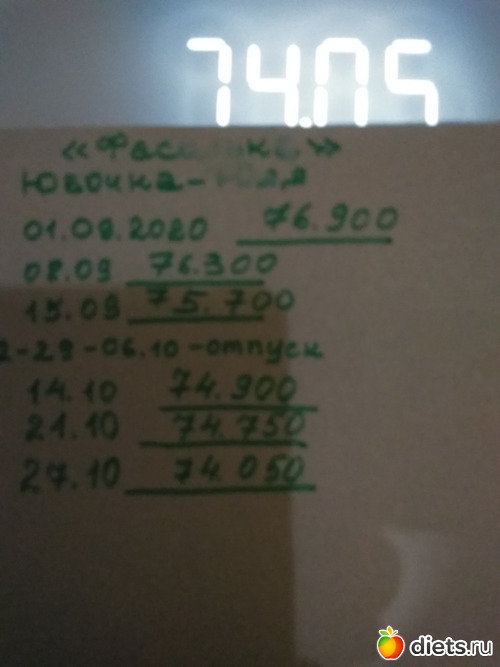 74.05
«Фасолька»
Ювочка - Юля
01.09.2020 76.900
08.09 76.300
15.09 75.700
2-29-06.10-отпуск
14.10 74.900
21.10 74.750
27.10 74.050
diets.ru